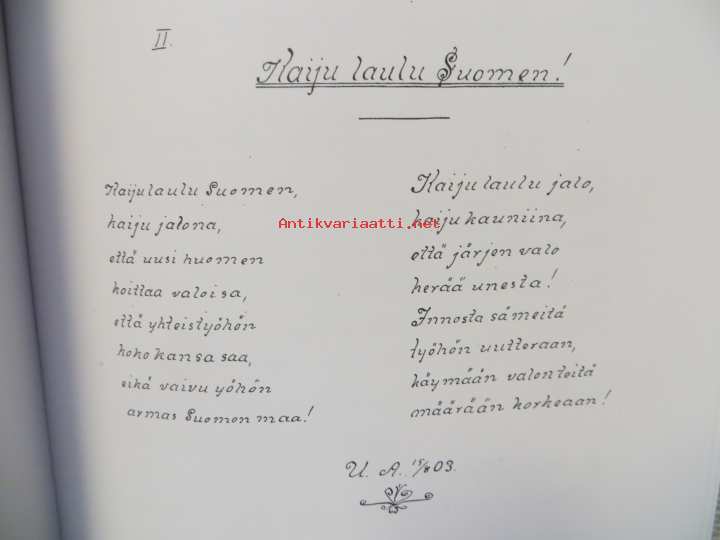 II.
Kaiju laulu Suomen!
Kaiju laulu Suomen,
kaiju jalona,
että uusi huomen
koittaa valoisa,
että yhteistyöhön
koko kansa saa,
eikä vaivu yöhön
armas Suomen maa!
Kaiju laulu jalo,
kaiju kauniina,
että järjen valo
herää unesta!
Innosta sämeitä
työhön uutteraan,
käymään valonteitä
määrään korkeaan!
U. A. 15/8 03.
Antikvariaatti.net